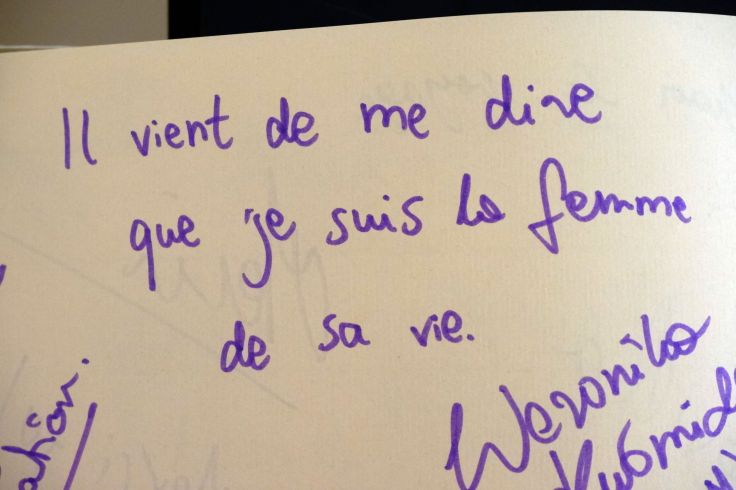 Il vient de me dire
que je suis la femme
de sa vie.
Weronika